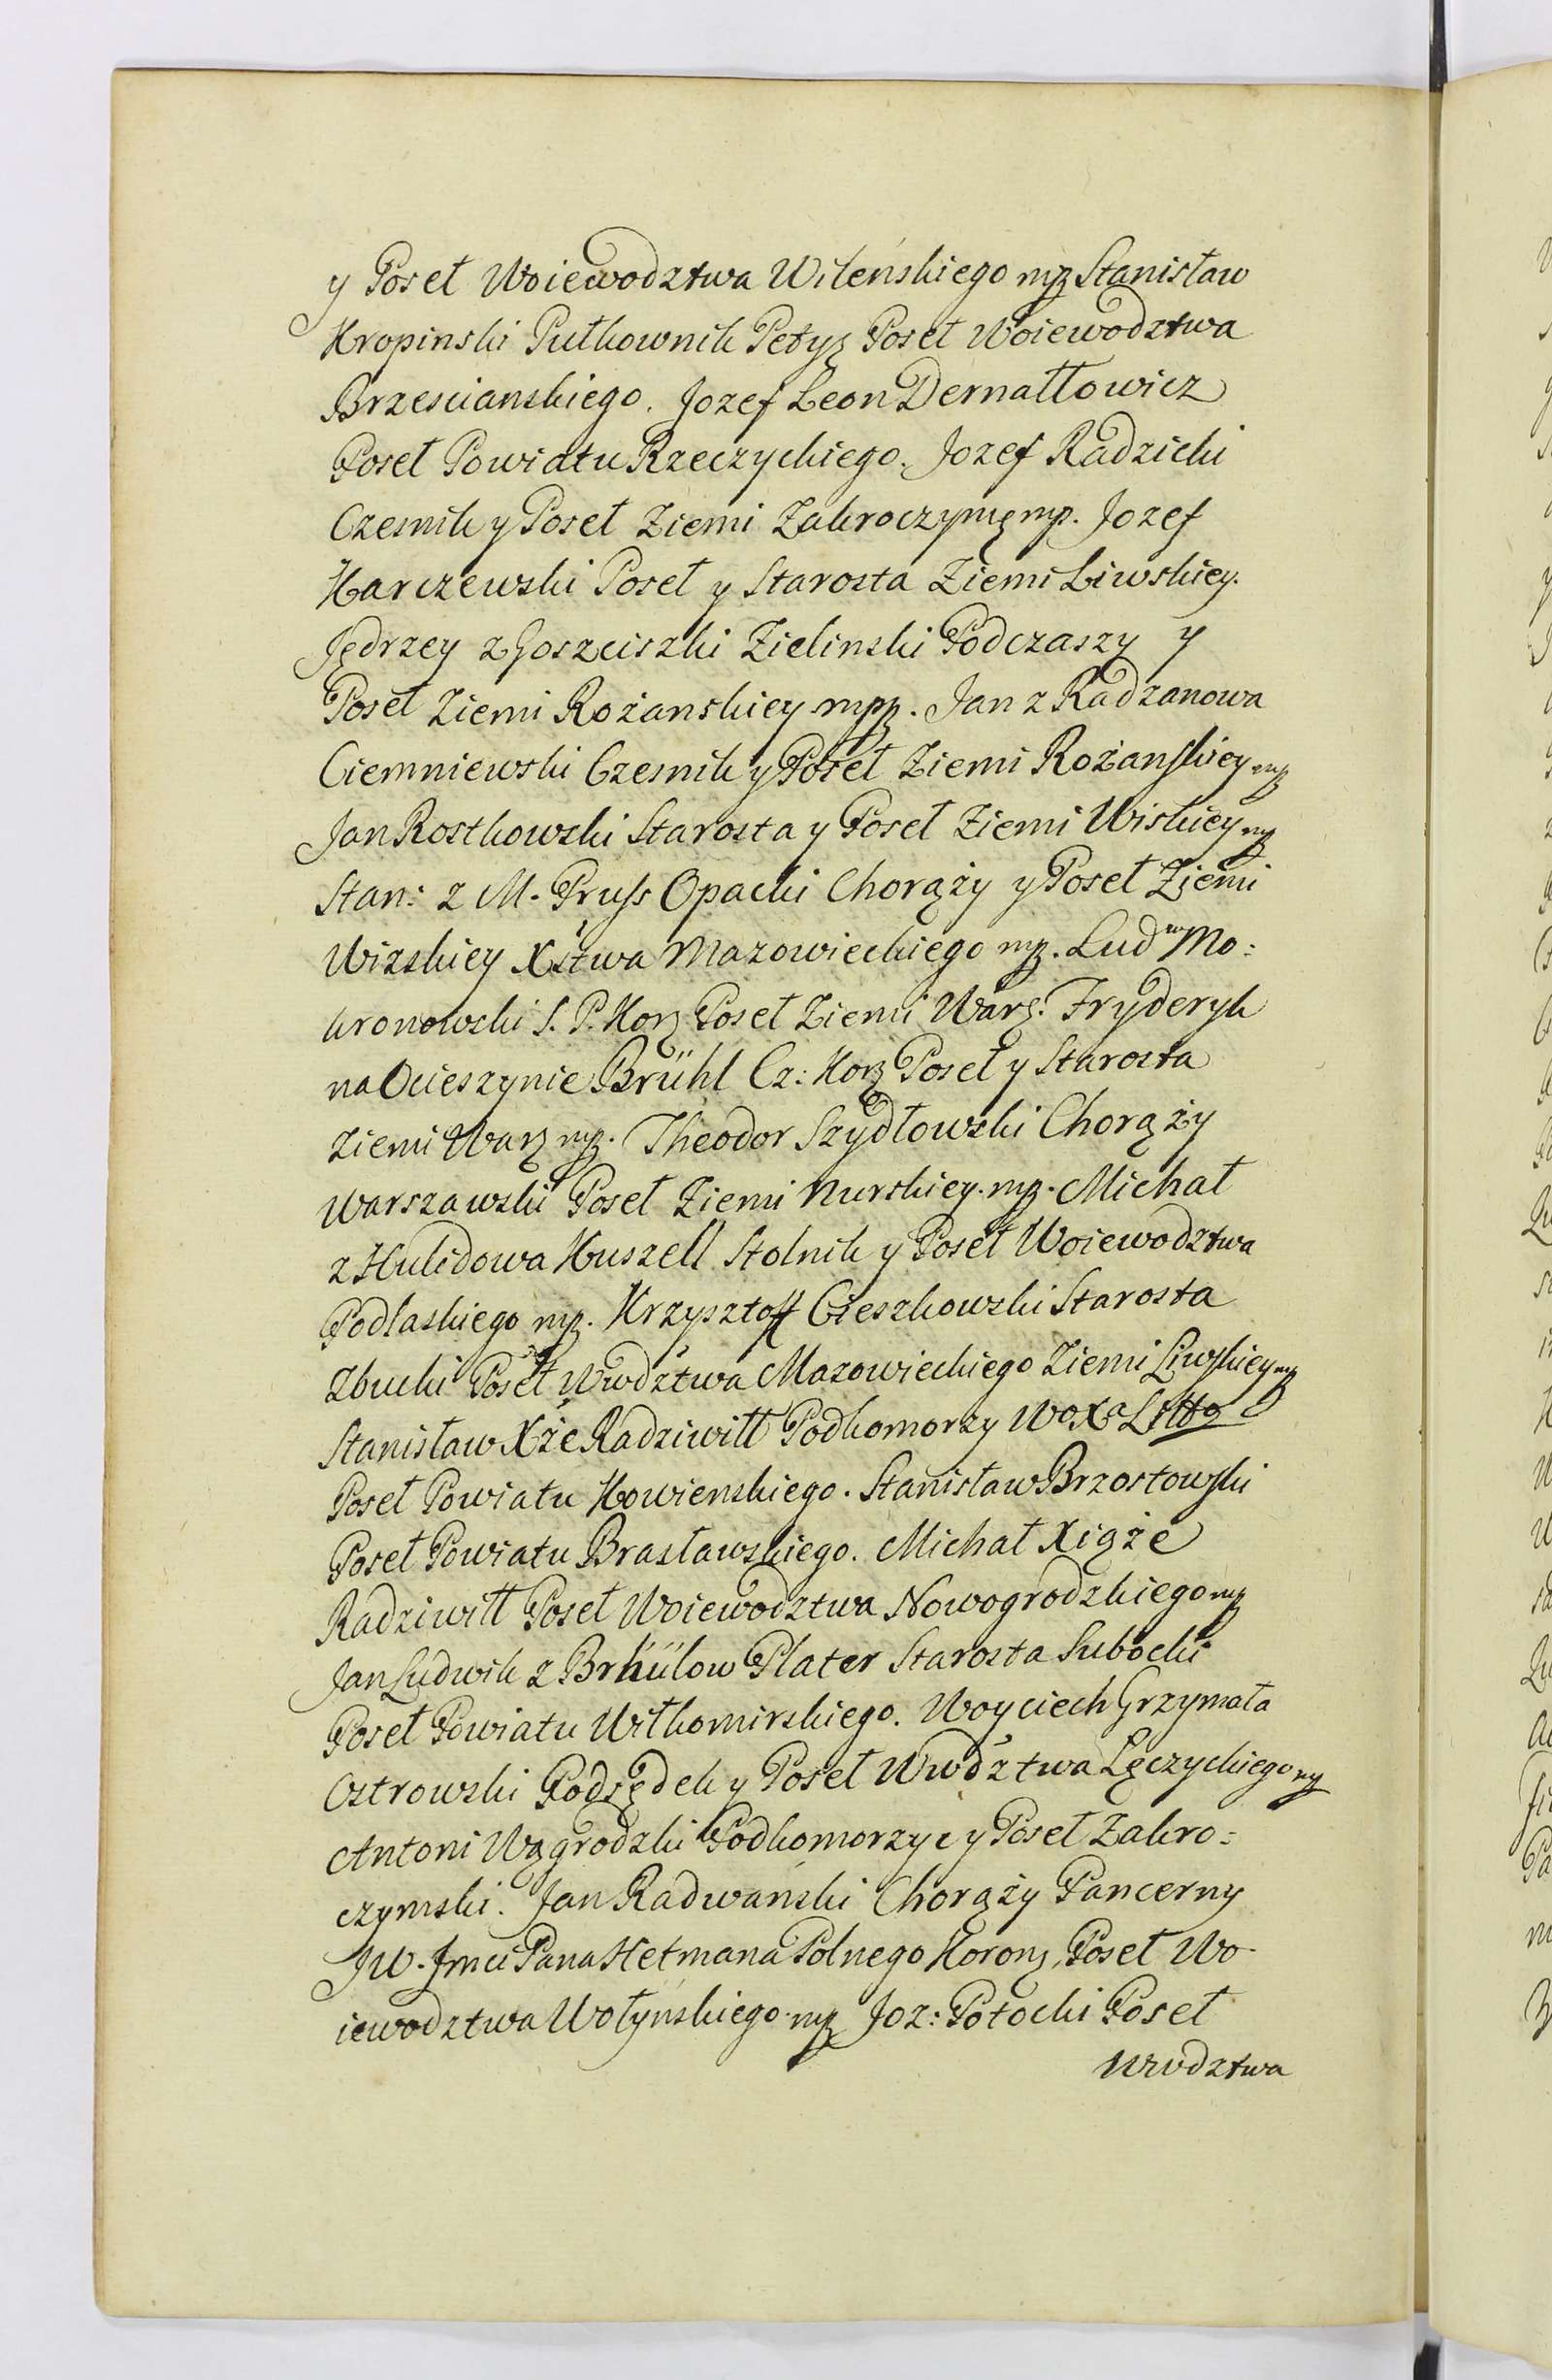 y Poseł Woiewodztwa Wileńskiego mp Stanisław
Kropinski Pułkownik Petyz Poseł Woiewodztwa
Brzescianskiego. Jozef Leon Dernałłowicz
Poseł Powiatu Rzeczyckiego. Jozef Radzicki
Czesnik y Poseł Ziemi Zakroczymę mp. Jozef
Karczewski Poseł y Starosta Ziemi Liwskiey.
Jędrzey z Goszciszki Zielinski Podczaszy y
Poseł Ziemi Rożanskiey mpp. Jan z Radzanowa
Ciemniewski Czesnik y Poseł Ziemi Rożanskiey mp
Jan Rostkowski Starosta y Poseł Ziemi Wiskiey mp
Stan: z M. Pruss Opacki Chorąży y Poseł Ziemi
Wizskiey Xstwa Mazowieckiego mp. Ludw Mo:
kronowski S. P. Kor Poseł Ziemi Wars. Fryderyk
na Ocieszynie Brühl Cz: Kor Poseł y Starosta
Ziemi War mp. Theodor Szydłowski Chorąży
Warszawski Poseł Ziemi Nurskiey. mp. Michał
z Kulidowa Kuszell Stolnik y Poseł Woiewodztwa
Podlaskiego mp. Krzysztoff Cieszkowski Starosta
Zbucki Poseł Wwdztwa Mazowieckiego Ziemi Liwskiey mp
Stanisław Xże Radziwiłł Podkomorzy WoXa Litto
Poseł Powiatu Kowienskiego. Stanisław Brzostowski
Poseł Powiatu Brasławskiego. Michał Xiąże
Radziwiłł Poseł Woiewodztwa Nowogrodzkiego mp
Jan Ludwik z Brhülow Plater Starosta Subocki
Poseł Powiatu Wiłkomirskiego. Woyciech Grzymała
Ostrowski Podsędek y Poseł Wwdztwa Lęczyckiego mp
Antoni Wągrodzki Podkomorzyc y Poseł Zakro:
czymski. Jan Radwański Chorąży Pancerny
JW. Jmci Pana Hetmana Polnego Koron, Poseł Wo-
iewodztwa Wołyńskiego mp Joz: Potocki Poseł
Wwodztwa